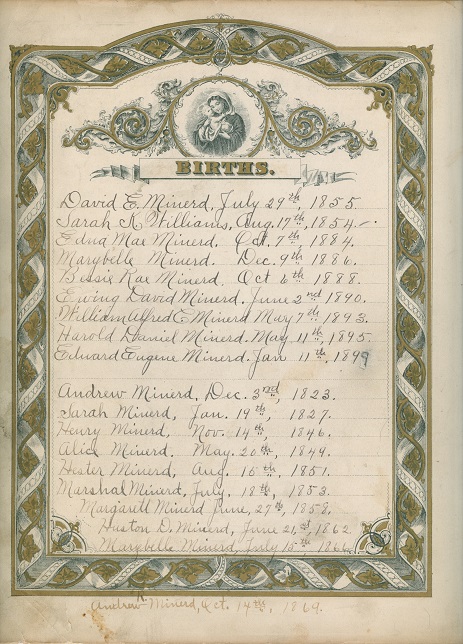 BIRTHS.
David E. Minerd, July 29th, 1855.
Sarah K Williams, Aug. 17th, 1854.
Edna Mae Minerd. Oct. 7th, 1884.
Marybelle Minerd. Dec. 9th, 1886.
Bessie Rae Minerd. Oct 6th, 1888.
Ewing David Minerd. June 2nd 1890.
William Alfred E Minerd May 7th, 1893.
Harold Daniel Minerd. May 11th, 1895.
Edward Eugene Minerd. Jan 11th, 1899
Andrew Minerd, Dec. 3rd, 1823.
Sarah Minerd, Jan. 19th, 1827.
Henry Minerd, Nov. 14th, 1846.
Alice Minerd. May. 20th, 1849.
Hester Minerd, Aug. 15th, 1851.
Marshal Minerd, July. 18th, 1853.
Margarett Minerd June, 27th, 1858.
Huston D. Minerd, June 21st, 1862
Marybelle Minerd, July 15th 1866
Andrew Minerd, Oct. 14th, 1869.